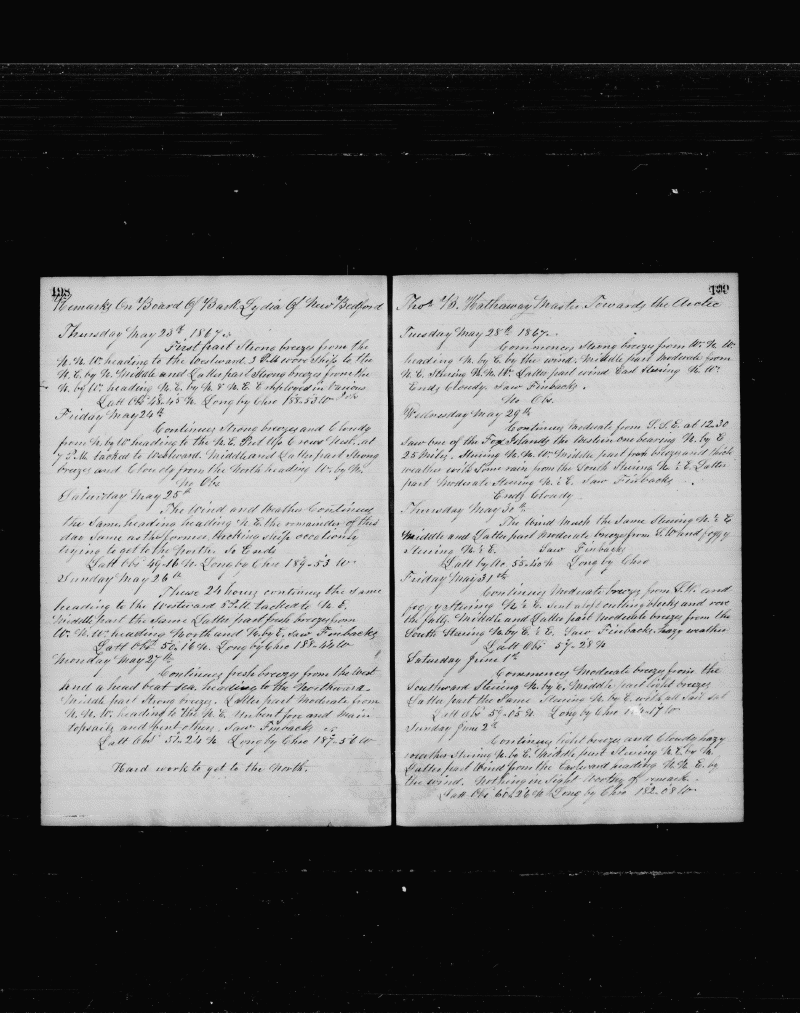 198
Remarks On Board Of Bark Lydia Of New Bedford
Thursday May 23th 1867
First part Strong breezes from the
N.N.W. heading to the Westward. 3 P.M. wore Ship to the
N.E. by N. Middle and Latter part Strong breezes from the
N. by W. heading N.E. by N. & N.E. Employed in Various
Jobs
Latt Obs 48-45 N. Long by Chro 188-53 W
Friday May 24th
Continues Strong breezes and Cloudy
from N. by W heading to the N.E. at
7 P.M. tacked to Westward. Middle and Latter part Strong
breezes and Cloudy from the North heading W. by N.
No Obs
Saturday May 25th
The Wind and Weather Continues
the Same heading heading N.E. the remainder of this
day Same as the former, tacking ship occationly
trying to get to the North. So Ends
Latt Obs 49-16 N. Long by Chro 189-53 W
Sunday May 26th
These 24 hours continues the Same
heading to the Westward 5 P.M. tacked to N.E.
Middle part the Same Latter part fresh breezes from
W.N.W. heading North and N. by E. Saw Finbacks
Latt Obs 50-16 N. Long by Chro 188-44 W
Monday May 27th
Continues fresh breezes from the West
and a head beat sea, heading to the Northward.
Middle part Strong breezes. Latter part Moderate from
N.N.W. heading to the N.E. Unbent fore and Main
topsails and bent others. Saw Finbacks
Latt Obs 51-24 N Long by Chro 187-56 W
Hard work to get to the North.
199
Thos. B. Hathaway Master Towards the Arctic
Tuesday May 28th 1867
Commences Strong breezes from W.N.W.
heading N. by E. by the wind. Middle part Moderate from
N.E. Steering N.N.W. Latter part wind East Steering N.W.
Ends Cloudy. Saw Finbacks.
No Obs.
Wednesday May 29th
Continues Moderate from S.S.E. at 12.30
Saw one of the Fox Islands the Western one bearing N. by E
25 Miles. Steering N.N.W. Middle part breezes and thick
weather with Some rain from the South Steering N.&E. Latter
part Moderate Steering N.&E. Saw Finbacks
Ends Cloudy
Thursday May 30th
The Wind Much the Same Steering N.&E
Middle and Latter part Moderate breezes from S.W. and foggy
Steering N.&E. Saw Finbacks
Latt by Ac 55-40 N Long by Chro
Friday May 31th
Continues Moderate breezes from S.W. and
foggy Steering N.&E. Sent aloft cutting blocks and rove
the falls. Middle and Latter part Moderate breezes from the
South Steering N. by E.&E. Saw Finbacks. hazy weather
Latt Obs 57-28 N
Saturday June 1th
Commences Moderate breezes from the
Southward Steering N. by E. Middle part light breezes
Latter part the Same Steering N. by E. with all Sail Set
Latt Obs 59-05 N. Long by Chro
Sunday June 2th
Continues light breezes and Cloudy, hazy
weather Steering N. by E. Middle part Steering N.E. by N.
Latter part Wind from the Eastward heading N.N.E. by
the wind. Nothing in Sight worthy of remark.
Latt Obs 60-26 N. Long by Chro 182-08 W.